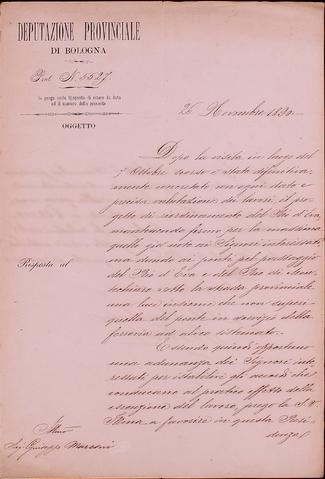 DEPUTAZIONE PROVINCIALE
DI BOLOGNA
Prot. N. 5527
Si prega nella risposta di citare la data
ed il numero della presente
OGGETTO
26 Novembre 1880
Dopo la visita in luogo del
7 Ottobre scorso è stato definitiva-
mente con ogni dato e
precisa valutazione di lavori, il pro-
getto di riordinamento del Rio d'Eva,
mantenendo fermo per la massima
quello già noto ai Signori interessati,
ma dando ai ponti pel passaggio
del Rio d'Eva e del Rio di
sotto la strada provinciale
una luce insieme che non superi
quella del ponte in servizio della
ferrovia ad alveo sistemato.
Essendo quindi opportuna
una adunanza dei Signori inte-
ressati per istabilire gli accordi che
conducano al pratico effetto della
esecuzione del lavoro, prego la S. V.
Illma a favorire in questa Resi-
denza
Risposta al
Illmo
Sig. Giuseppe Marconi